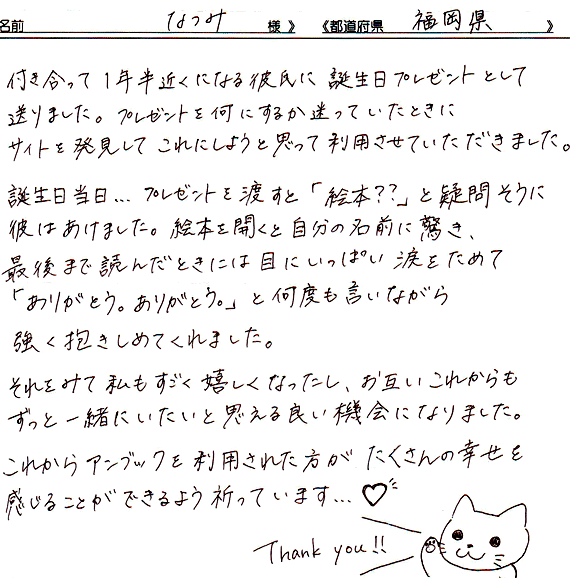 名前 なつみ 様 》 《都道府県 福岡県 》
付き合って1年半近くになる彼氏に 誕生日プレゼントとして
送りました。プレゼントを何にするか迷っていたときに
サイトを発見して これにしようと思って利用させていただきました。
誕生日当日… プレゼントを渡すと「絵本??」と疑問そうに
彼はあけました。絵本を開くと自分の名前に驚き、
最後まで読んだときには目にいっぱい涙をためて
「ありがとう。ありがとう。」と何度も言いながら
強く抱きしめてくれました。
それをみて私もすごく嬉しくなったし、お互いこれからも
ずっと一緒にいたいと思える良い機会になりました。
これからアンブックを利用された方が たくさんの幸せを
感じることができるよう祈っています…♡
Thank you!!